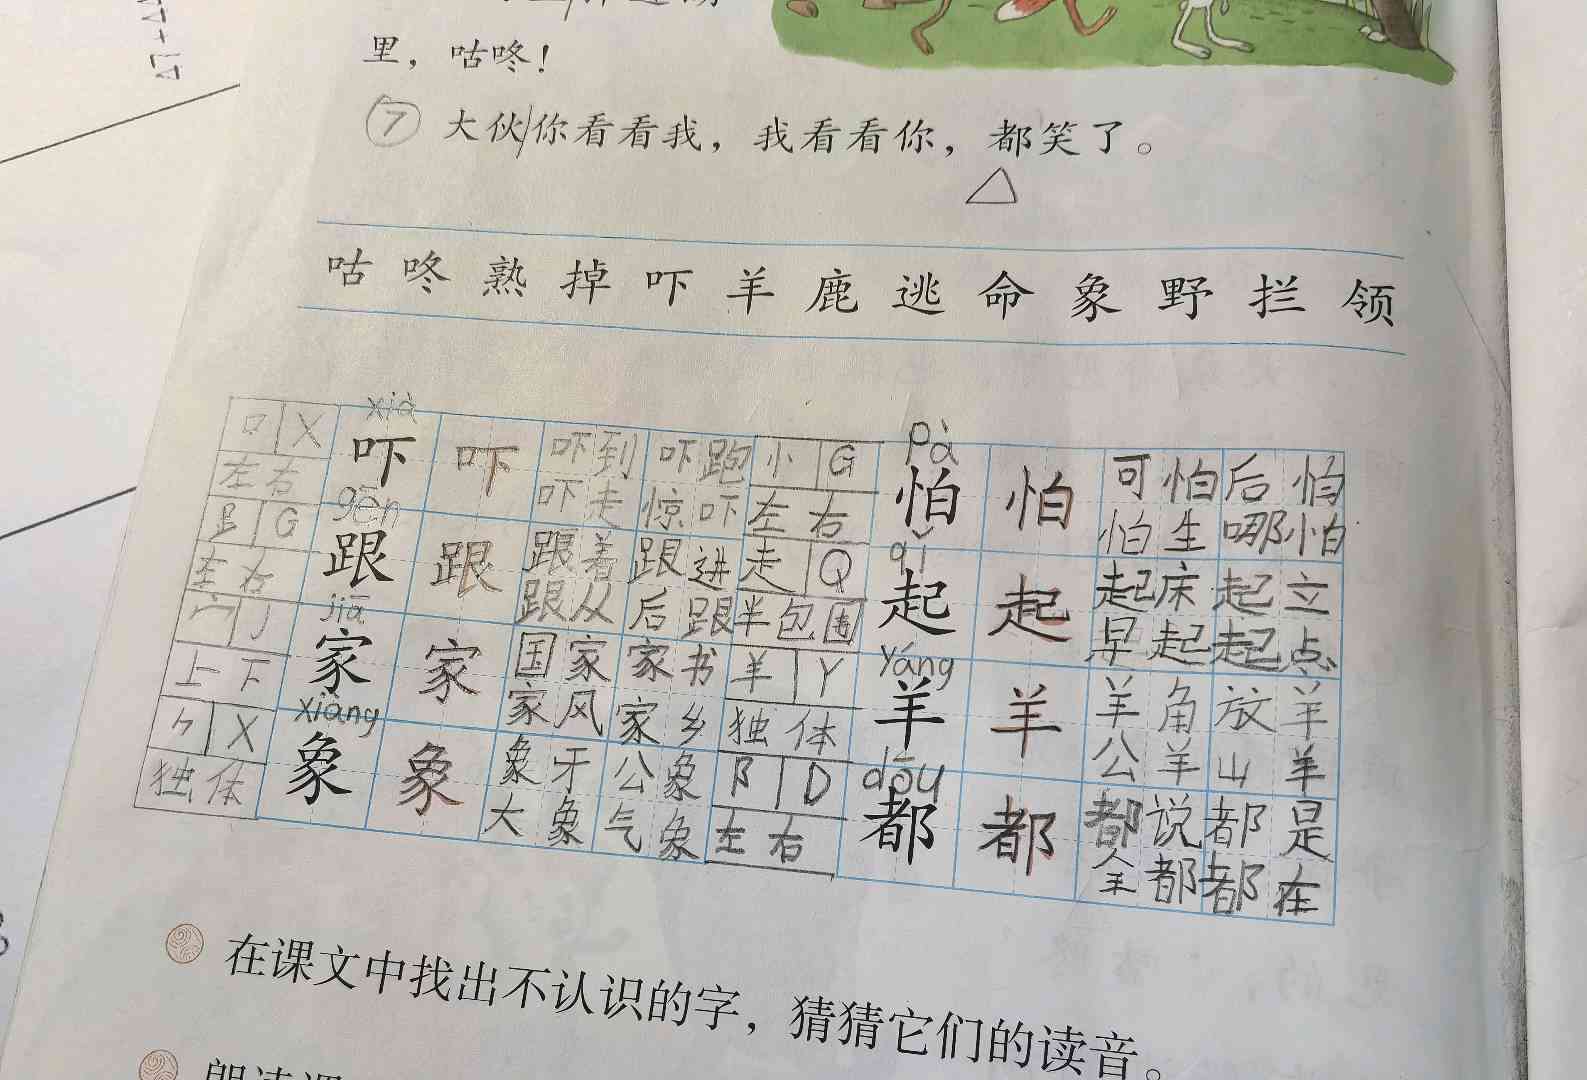 里，咕咚！
⑦ 大伙/你看看我，我看看你，都笑了。
咕 咚 熟 掉 吓 羊 鹿 逃 命 象 野 拦 领
口 X xià 吓 吓 吓到 吓跑 G pà 怕 怕 可怕 后怕
左右 吓走 惊吓 左右 怕生 哪怕
G gēn 跟 跟 跟着 跟进 走 Q qǐ 起 起 起床 起立
左右 跟从 后跟 半包围 早起 起点
宀 J jiā 家 家 国家 家书 羊 Y yáng 羊 羊 羊角 放羊
上下 家风 家乡 独体 公羊 山羊
⺈ X xiàng 象 象 象牙 公象 阝 D dōu 都 都 都说 都是
独体 大象 气象 左右 全都 都在
在课文中找出不认识的字，猜猜它们的读音。